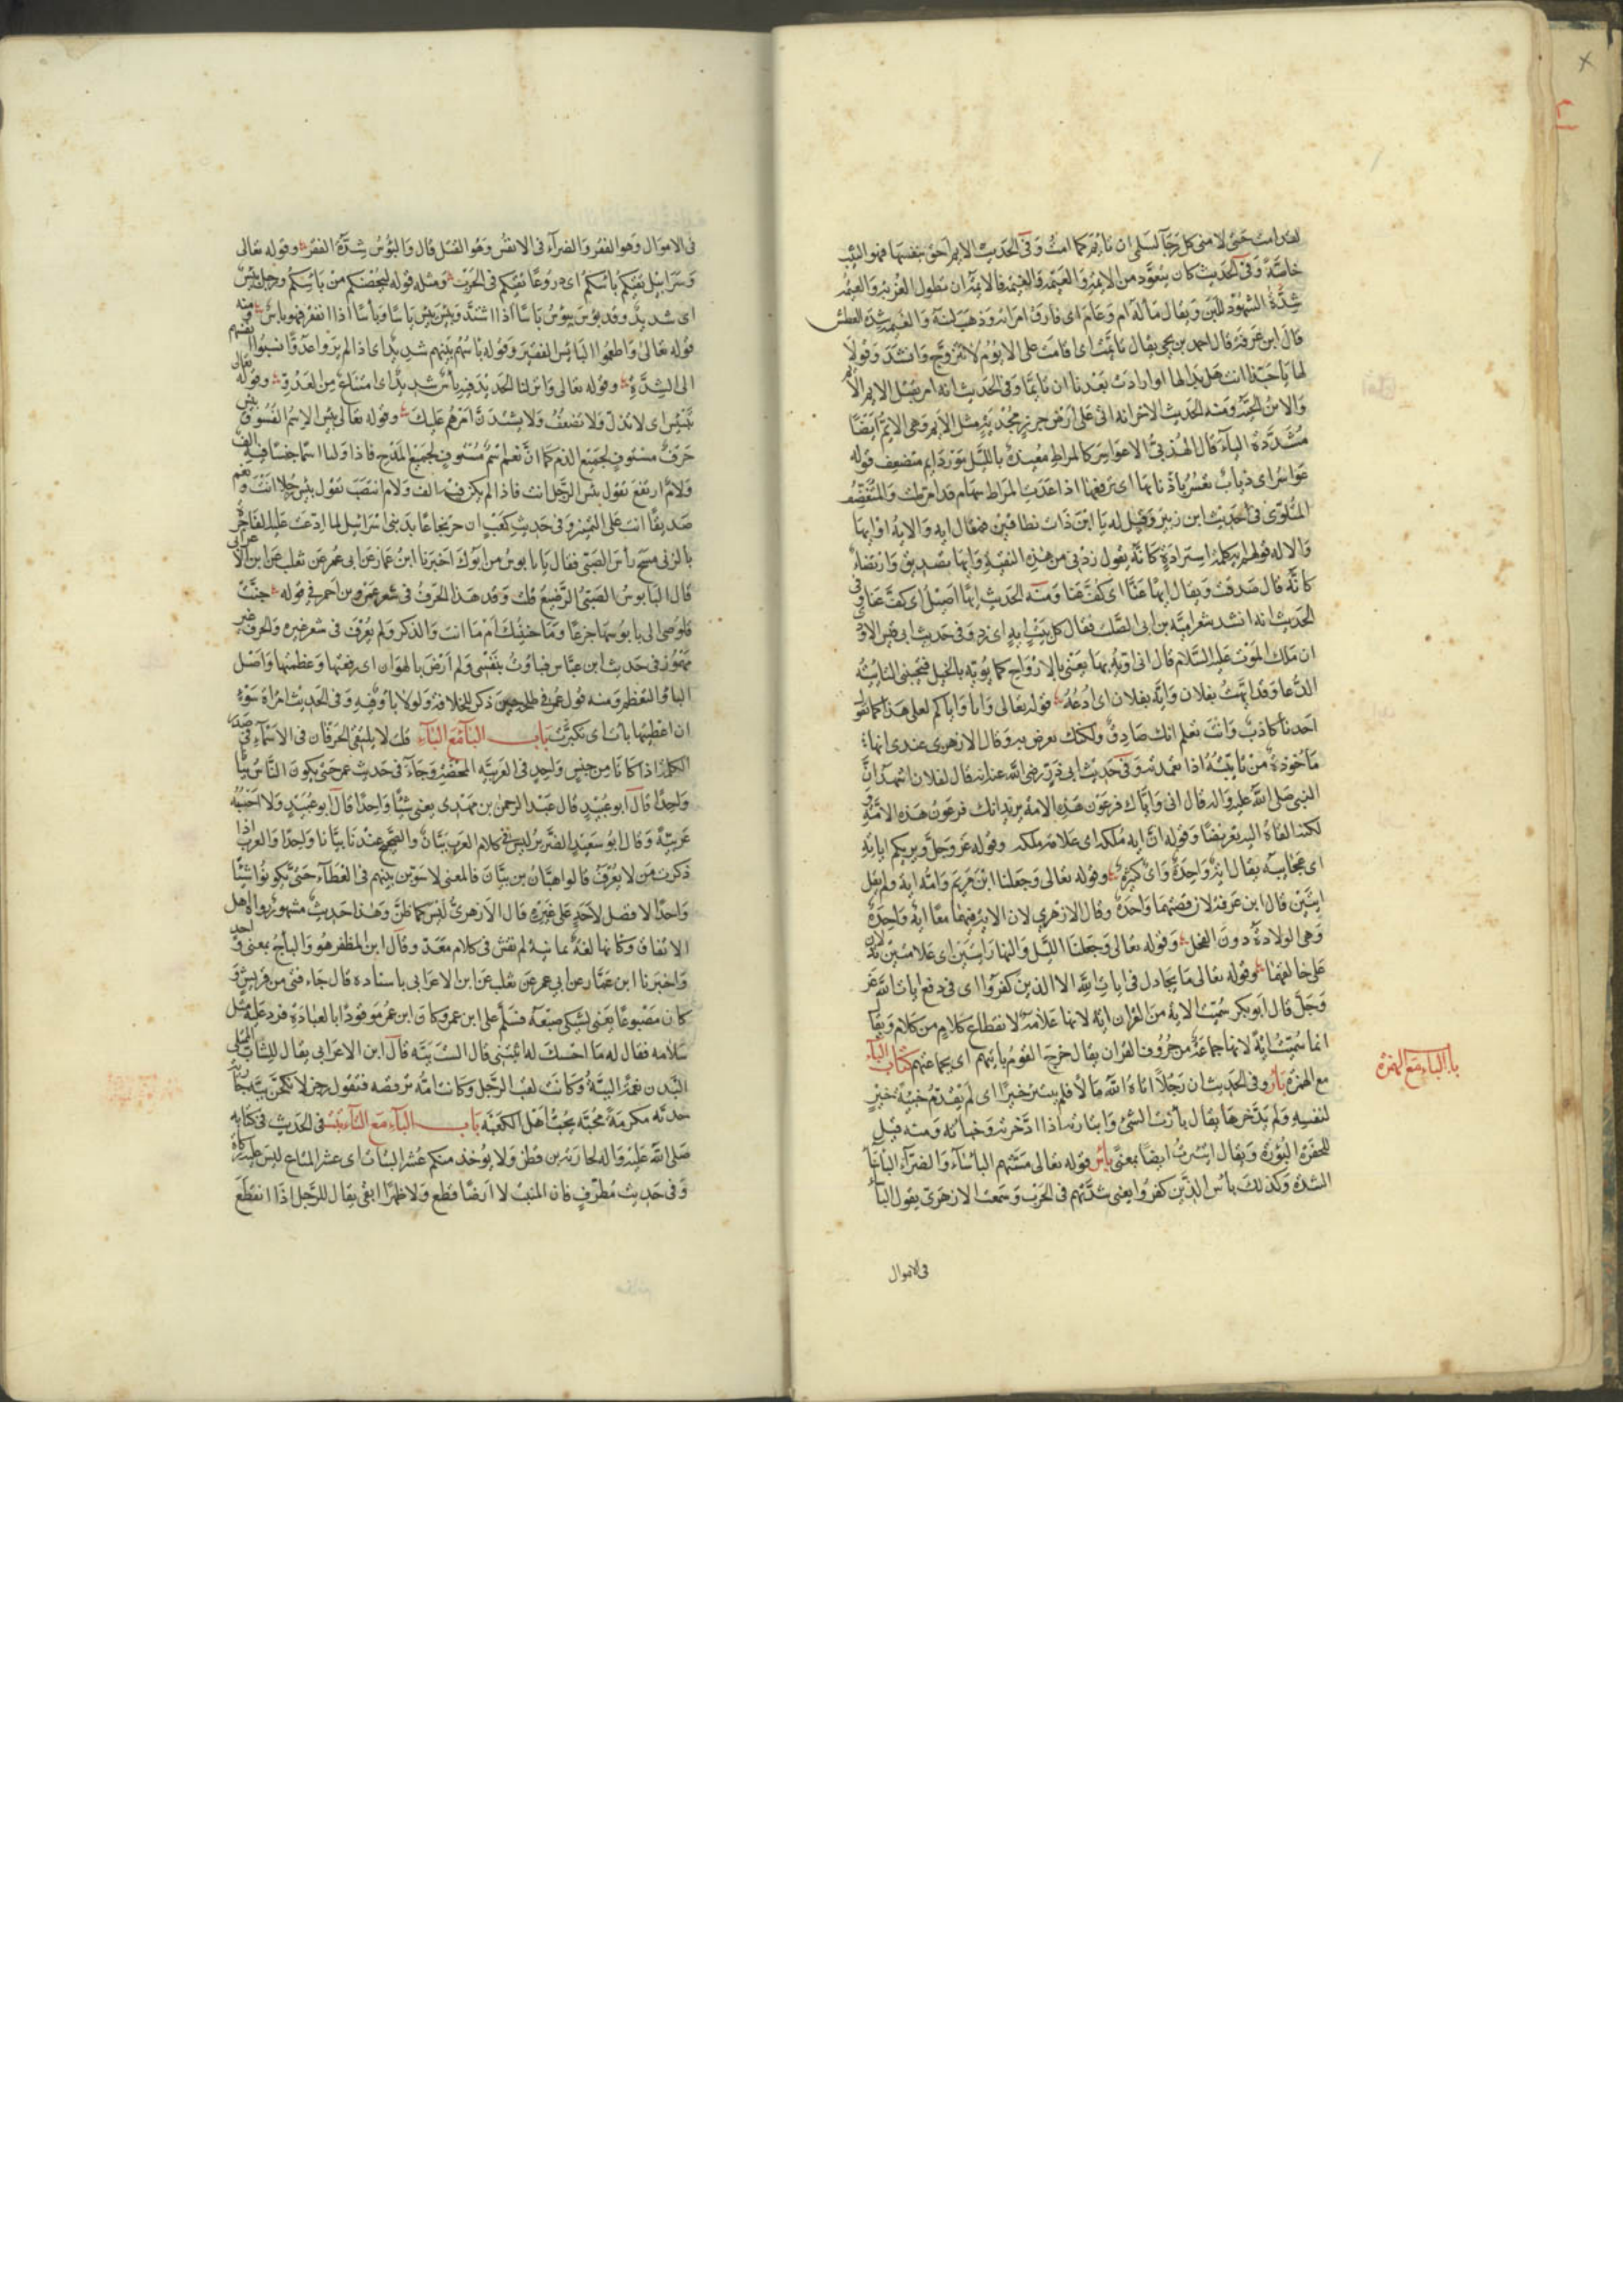 لقد امت حتى لامنى كل صاحب رجاء لسلمى ان تايم كما امت وفى الحديث الايم احق بنفسها فهو الثيب
خاصة وفى الحديث كان يتعوذ من الايمة والعيمة والغيمة فالايمة ان يطول العزبة والعيمة
شدة الشهوة للبن ويقال ماله آم وعام اى فارق امراته وذهب لبنه والغيمة شدة العطش
قال ابن عرفة قال احمد بن يحيى يقال تايمت اى اقامت على الايوم لا تتزوج وانشد وقولا
لها يا حبذا انت هل بدا لها او ارادت بعدنا ان تايما وفى الحديث انه امر بقتل الايم
والاين الحية ومنه الحديث الاخر انه اتى على ارض جرز مجدبة مثل الايم وهى الايم ايضا
مشددة الياء قال الهذلى الا عواسر كالمراط معيدة بالليل مورد ايم متغضف قوله
عواسر اى ذئاب تعسر باذنابها اى ترفعها اذا عدت المراط سهام قد امرطت والمتغضف
المتلوى فى حديث ابن زبير وقيل له يا ابن ذات نطاقين فقال ايه والاله او ايها
والاله قولهم ايه كلمة استزادة كانه يقول زدنى من هذه النقيبة وايها تصديق وارتضاء
كانه قال صدقت ويقال ايها عنا اى كف عنا ومنه الحديث ايها اصيل اى كف عنا وفى
الحديث انه انشد شعر امية بن ابى الصلت فقال كل بيت ايه اى زد وفى حديث ابى قيس الاودى
ان ملك الموت عليه السلام قال انى اؤيه بها يعنى بالارواح كما يؤيه بالخيل فتجيبنى التأييه
الدعا وقد ايهت بفلان وايه بفلان اى ادعه قوله تعالى وانا واياكم لعلى هدا كما تقول
احدنا كاذب وانت تعلم انك صادق ولكنك تعرض به وقال الازهرى عندى انها
ماخوذة من تاييته اذا تعمدته وفى حديث ابى ذر رضى الله عنه انه قال لفلان اشهد ان
النبى صلى الله عليه واله قال انى واياك فرعون هذه الامة يريد انك فرعون هذه الامة
لكنه القاه اليه تعريضا وقوله ان اية ملكه اى علامة ملكه وقوله عز وجل ويريكم اياته
اى عجايبه يقال اية واحدة واى كثيرة وقوله تعالى وجعلنا ابن مريم وامه اية ولم يقل
ايتين قال ابن عرفة لان قصتهما واحدة وقال الازهرى لان الاية فيهما معا اية واحدة
وهى الولادة دون الفحل وقوله تعالى وجعلنا الليل والنهار ايتين اى علامتين
على خالقهما وقوله تعالى ما يجادل فى ايات الله الا الذين كفروا اى فى دفع ايات الله عز
وجل قال ابو بكر سميت الاية من القران اية لانها علامة لانقطاع كلام من كلام ويقال
انما سميت اية لانها جماعة من حروف القران يقال خرج القوم بايتهم اى بجماعتهم كتاب الباء
باب الباء مع الهمزة
مع الهمزة بأر وفى الحديث ان رجلا اتاه الله مالا فلم يبتئر خيرا اى لم يقدم خبيئة خير
لنفسه ولم يدخرها يقال بأرت الشئ وابتارته اذا ادخرته وخباته ومنه قيل
للحفرة البؤرة ويقال ائتبرت ايضا بمعنى بأس قوله تعالى مستهم الباساء والضراء الباساء
الشدة وكذلك بأس الذين كفروا يعنى شدتهم فى الحرب وسمعت الازهرى يقول الباساء
فى الاموال
فى الاموال وهو الفقر والضراء فى الانفس وهو القتل قال والبؤس شدة الفقر وقوله تعالى
وسرابيل تقيكم باسكم اى دروعا تقيكم فى الحرب ومثله قوله لتحصنكم من باسكم ورجل بئيس
اى شديد وقد بؤس يبؤس باسا اذا اشتد وبئس يبئس باسا وبأسا اذا افتقر فهو بائس ومنه
قوله تعالى واطعموا البائس الفقير وقوله باسهم بينهم شديد اى اذا لم يروا عدوا نسبوا انفسهم
الى الشدة وقوله تعالى وانزلنا الحديد فيه بأس شديد اى امتناع من العدو وقوله تعالى
تبتئس اى لا تذل ولا تضعف ولا يشتدن امرهم عليك وقوله تعالى بئس الاسم الفسوق بئس
حرف مستوف لجميع الذم كما ان نعم اسم مستوف لجميع المدح فاذا وليا اسما جنسا فيه الف
ولام ارتفع تقول بئس الرجل انت فاذا لم يكن فيه الف ولام انتصب تقول بئس رجلا انت ونعم
صديقا انت على التمييز وفى حديث كعب ان جريجا عابد بنى اسرائيل لما ادعت عليه الفاجرة
بالزنى مسح رأس الصبى فقال يا بابوس من ابوك اخبرنا ابن عمار عن ابى عمر عن ثعلب عن ابن الاعرابى
قال البابوس الصبى الرضيع قلت وقد هذا الحرف فى شعر عمرو بن احمر فى قوله حنت
قلوصى الى بابوسها جزعا وما حنينك ام ما انت والذكر ولم يعرف فى شعر غيره والحرف غير
مهموز فى حديث ابن عباس فباوت بنفسى ولم ارض بالهوان اى رفعتها وعظمتها واصل
الباو التعظم ومنه قول عمر فى طلحة حين ذكر للخلافة ولولا بأو فيه وفى الحديث امراة سوء
ان اعطيتها بأت اى تكبرت باب الباء مع الباء قلت لا يلتقى الحرفان فى الاسماء فى صدر
الكلمة اذا كانا من جنس واحد فى العربية المحضة وجاء فى حديث عمر حتى يكون الناس ببانا
واحدا قال ابو عبيد قال عبد الرحمن بن مهدى يعنى شيئا واحدا قال ابو عبيد ولا احسبه
عربية وقال ابو سعيد الضرير ليس فى كلام العرب ببان والصحيح عندنا بيانا واحدا والعرب اذا
ذكرت من لا يعرف قالوا هيان بن بيان فالمعنى لاسوين بينهم فى العطاء حتى يكونوا شيئا
واحدا لا فضل لاحد على غيره قال الازهرى ليس كما ظن وهذا حديث مشهور رواه اهل
الاتقان وكانها لغة يمانية لم تفش فى كلام معد وقال ابن المظفر هو والبأج بمعنى واحد
واخبرنا ابن عمار عن ابى عمر عن ثعلب عن ابن الاعرابى باسناده قال جاء فتى من قريش و
كان مصبوغا فسلم على ابن عمر وكان ابن عمر موقوذا بالعبادة فرد عليه مثل
سلامه فقال له ما احسبك له اثبتنى قال الست ببه قال ابن الاعرابى يقال للشاب الممتلى
البدن نعمة الببة وكانت لقب الرجل وكانت امه ترقصه فتقول رجز لانكحن ببه جارية
خدبه مكرمة محبه تحب اهل الكعبه باب الباء مع التاء بتت فى الحديث فى كتابه
صلى الله عليه واله لحارثة بن قطن ولا يوخذ منكم عشر البتات اى عشر المتاع ليس عليه زكاة
وفى حديث مطرف فان المنبت لا ارضا قطع ولا ظهرا ابقى يقال للرجل اذا انقطع